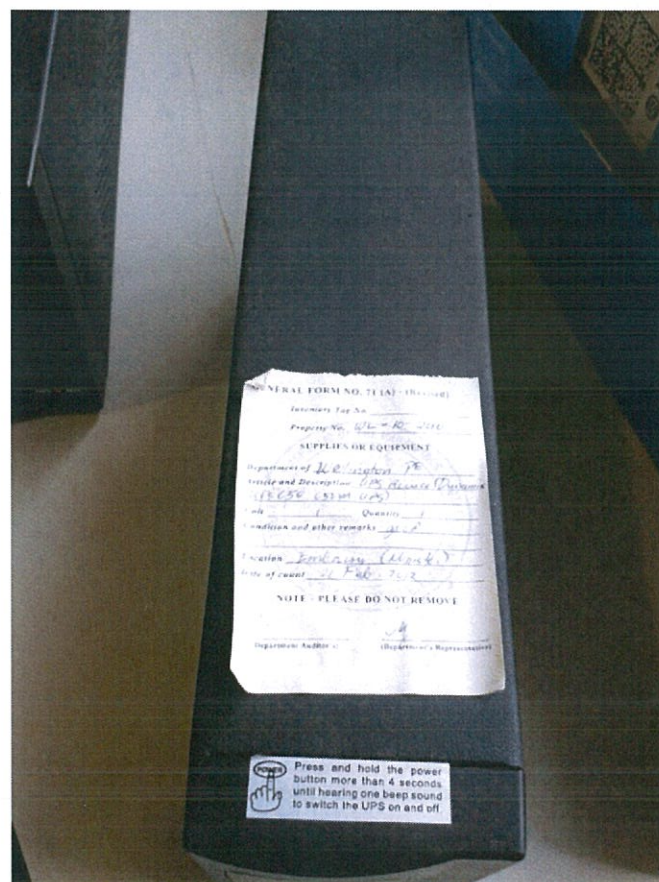 GENERAL FORM NO. 71 (A) - (Revised)
Inventory Tag No.
Property No. WL - R
SUPPLIES OR EQUIPMENT
Department of Wellington PE
Article and Description UPS
UPS)
Unit 1 Quantity 1
Condition and other remarks
Location
Date of count Feb. 2012
NOTE - PLEASE DO NOT REMOVE
Department Auditor
(Department's Representative)
POWER
Press and hold the power
button more than 4 seconds
until hearing one beep sound
to switch the UPS on and off.